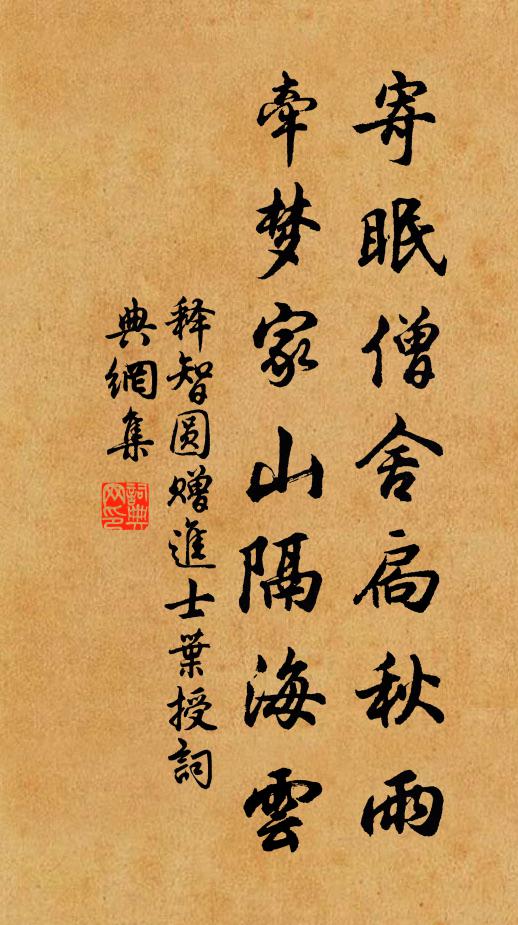 寄眠僧舍扃秋雨
牵梦家山隔海雲
释智圆赠進士葉授詞
典網集
詞典
网印